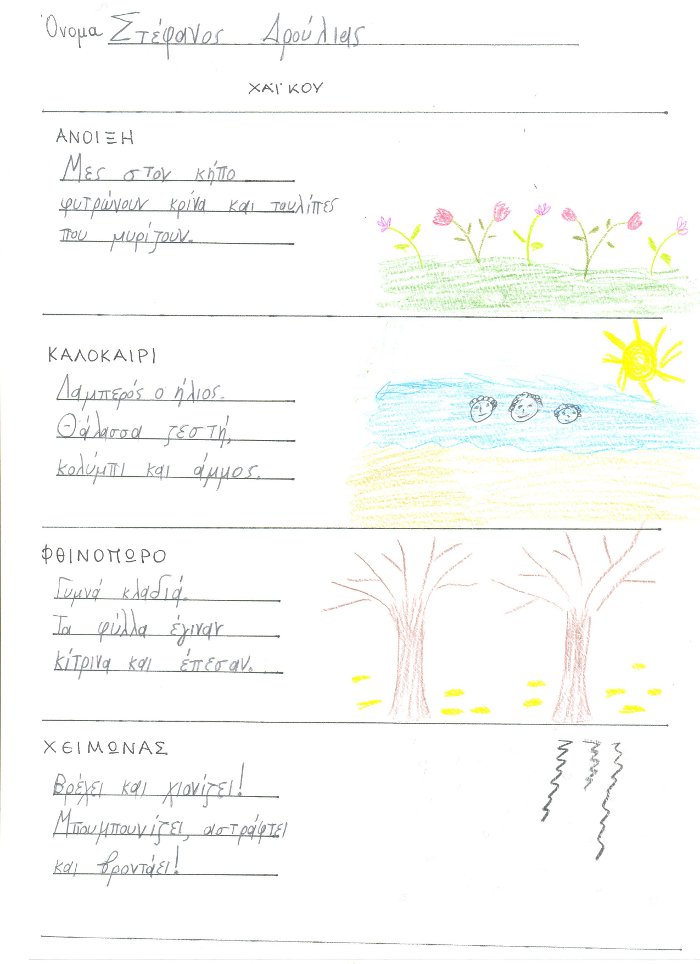 Όνομα Στέφανος Δρούλιας
ΧΑΪΚΟΥ
ΑΝΟΙΞΗ
Μες στον κήπο
φυτρώνουν κρίνα και τουλίπες
που μυρίζουν.
ΚΑΛΟΚΑΙΡΙ
Λαμπερός ο ήλιος.
Θάλασσα ζεστή,
κολύμπι και άμμος.
ΦΘΙΝΟΠΩΡΟ
Γυμνά κλαδιά.
Τα φύλλα έγιναν
κίτρινα και έπεσαν.
ΧΕΙΜΩΝΑΣ
Βρέχει και χιονίζει!
Μπουμπουνίζει, αστράφτει
και βροντάει!